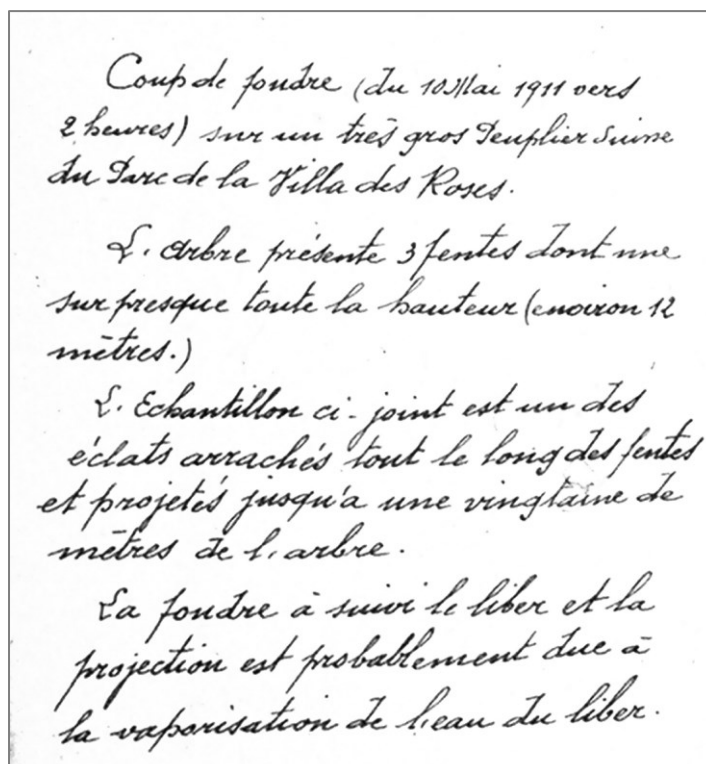 Coup de foudre (du 10 Mai 1911 vers
2 heures) sur un très gros Peuplier Suisse
du Parc de la Villa des Roses.
L'Arbre présente 3 fentes dont une
sur presque toute la hauteur (environ 12
mètres.)
L'Echantillon ci-joint est un des
éclats arrachés tout le long des fentes
et projetés jusqu'a une vingtaine de
mètres de l'arbre.
La foudre à suivi le liber et la
projection est probablement due à
la vaporisation de l'eau du liber.